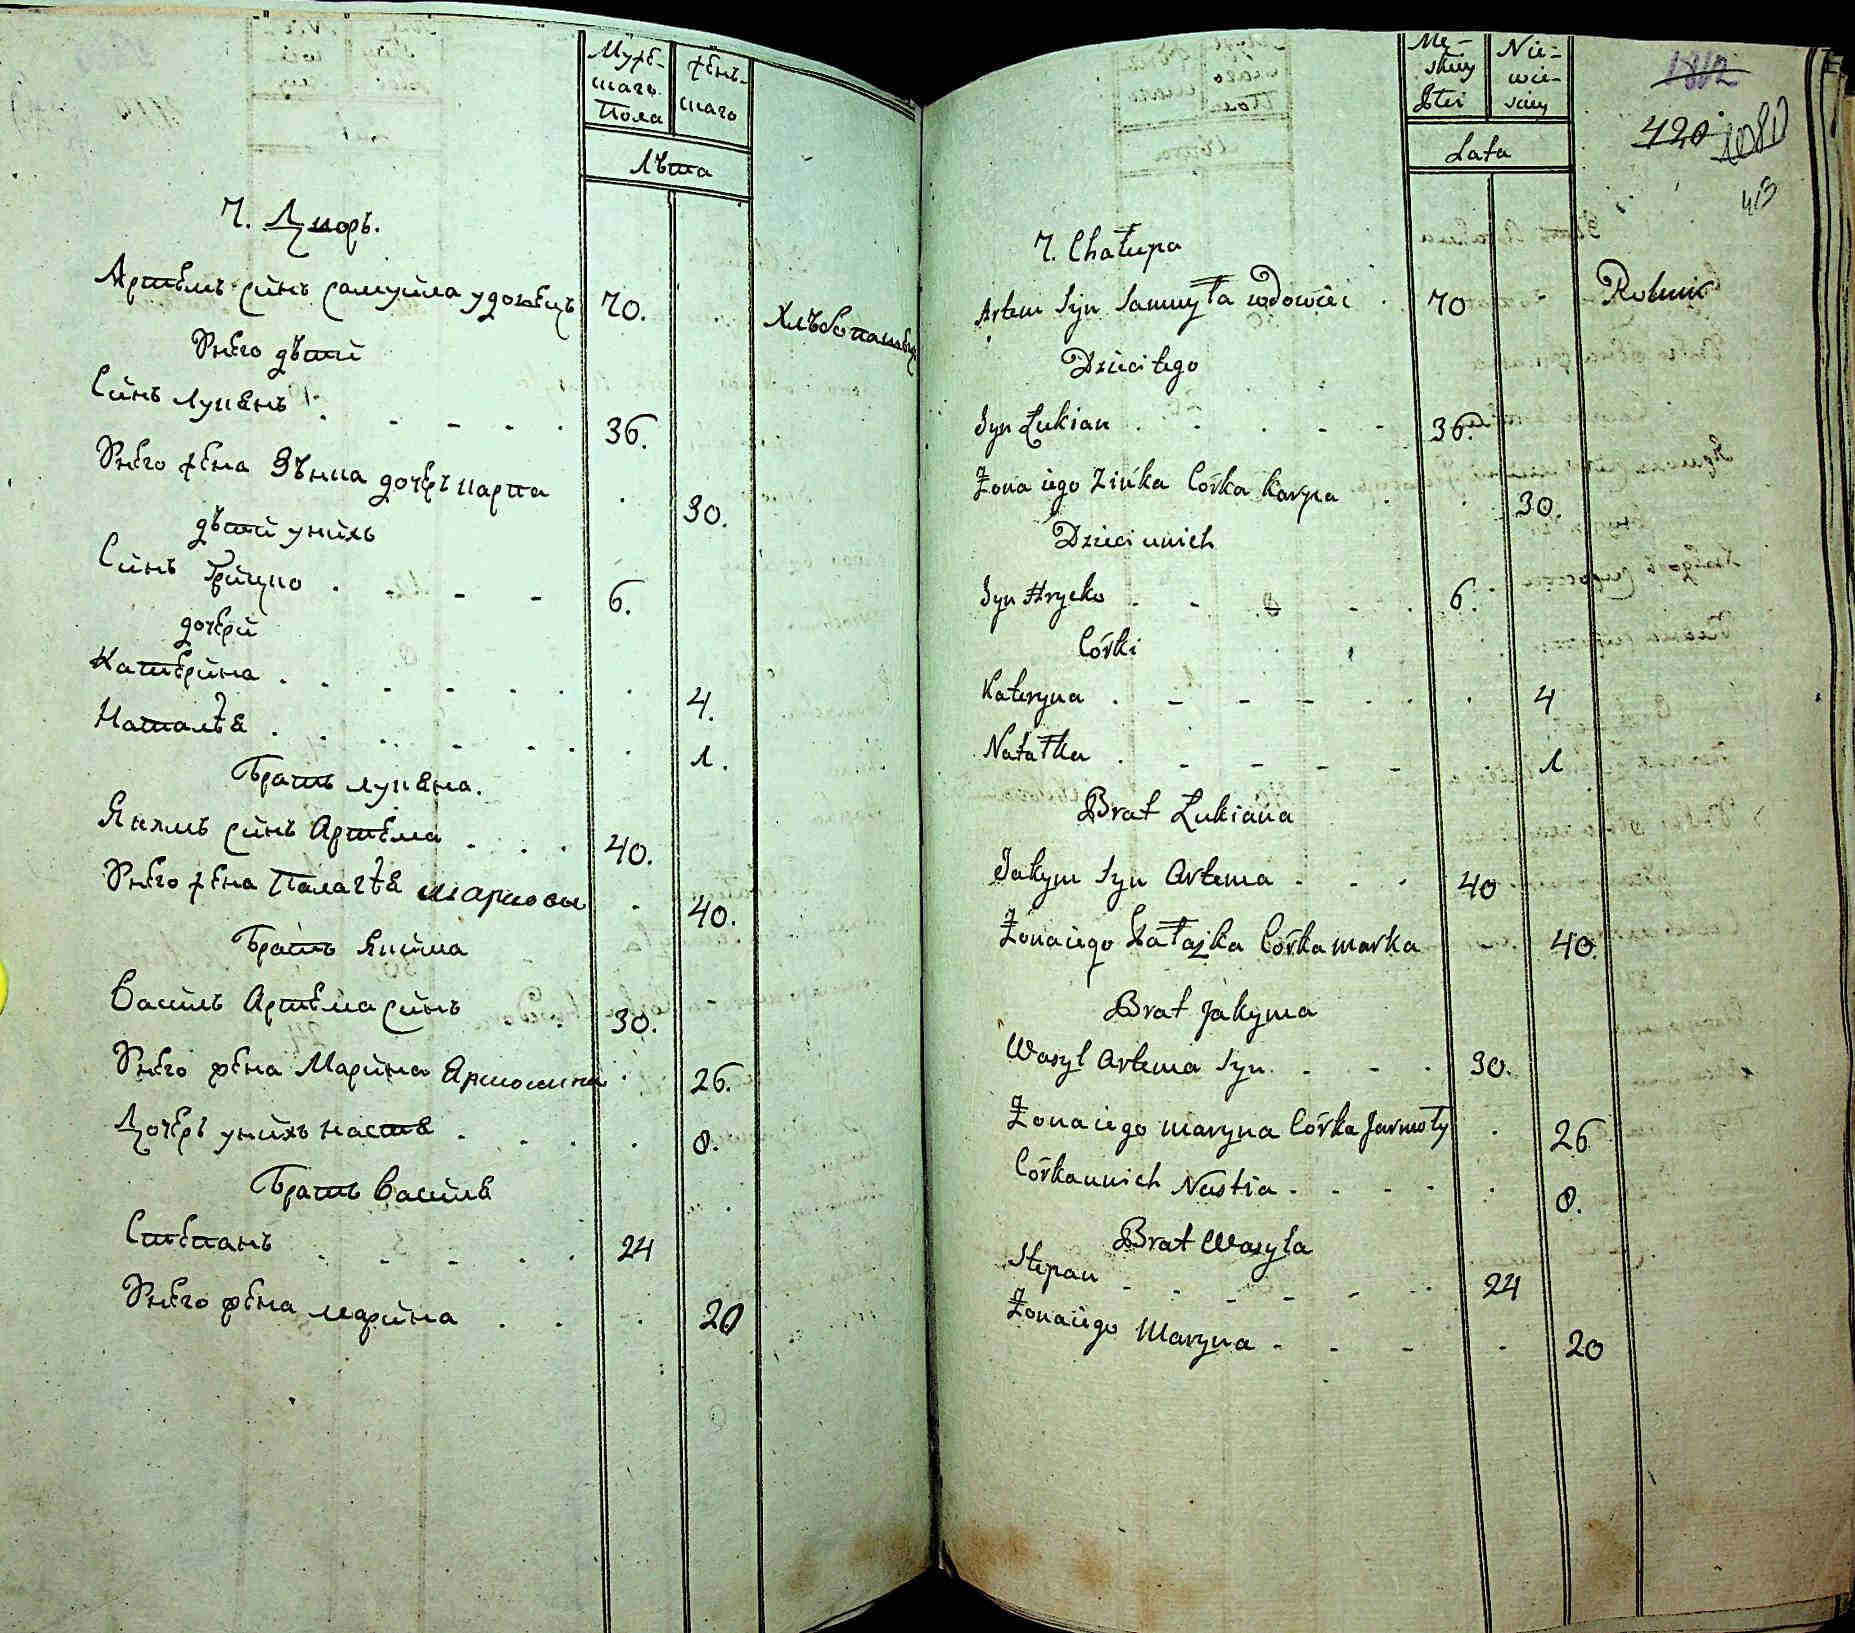 Муже-
скаго
Пола
жень-
скаго
Лѣта
7. Дворъ.
Артемъ синъ Самуйла удовецъ 70. Хлѣбопашецъ
Унего дѣти
Синъ Лукянъ 36.
Унего жена Зѣнка дочерь Карпа 30.
дѣти унихъ
Синъ Грицко 6.
дочери
Катерина 4.
Наталья 1.
Братъ Лукяна.
Якимъ синъ Артема 40.
Унего жена Палагея Маркова 40.
Братъ Якима
Василь Артема синъ 30.
Унего жена Марина 26.
Дочерь унихъ Настя 8.
Братъ Василя
Степанъ 24
Унего жена Марина 20
Mę-
skiey
Płci
Nie-
wie-
sciey
Lata
1812
420
1080
413
7. Chałupa
Artem Syn Samuyła wdowiec 70 Rolnik
Dzieci tego
Syn Łukian 36.
Żona iego Zińka Córka Karpa 30.
Dzieci unich
Syn Hrycko 6.
Córki
Kateryna 4
Natałka 1
Brat Łukiana
Jakym Syn Artema 40
Żona iego Pałazka Córka Marka 40.
Brat Jakyma
Wasyl Artema Syn 30.
Żona iego Maryna Córka Jarmoły 26
Córka unich Nastia 8.
Brat Wasyla
Stepan 24
Żona iego Maryna 20